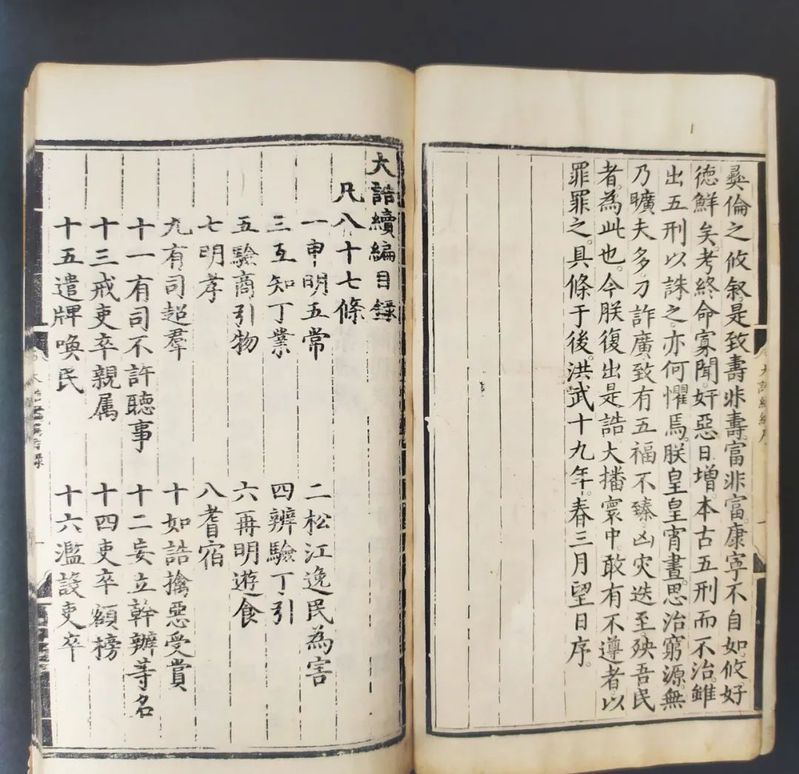 彛倫之攸敘是致壽非壽。富非富。康寧不自如。攸好
德鮮矣。考終命寡聞。奸惡日增。本古五刑而不治。雖
出五刑以誅之。亦何懼焉。朕皇皇宵晝。思治窮源。無
乃曠夫多刁詐廣致有五福不臻。凶灾迭至殃吾民
者。為此也。今朕復出是誥大播寰中。敢有不遵者。以
罪罪之。具條于後。洪武十九年。春三月望日序。
大誥續編目錄
凡八十七條
一申明五常 二松江逸民為害
三互知丁業 四辨驗丁引
五驗商引物 六再明遊食
七明孝 八耆宿
九有司超羣 十如誥擒惡受賞
十一有司不許聽事 十二妄立幹辦等名
十三戒吏卒親属 十四吏卒額榜
十五遣牌喚民 十六濫設吏卒